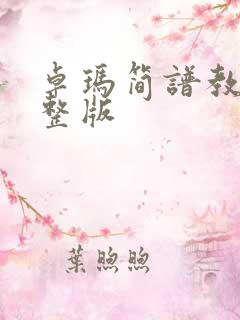 卓瑪简譜教
整版
葉煦煦